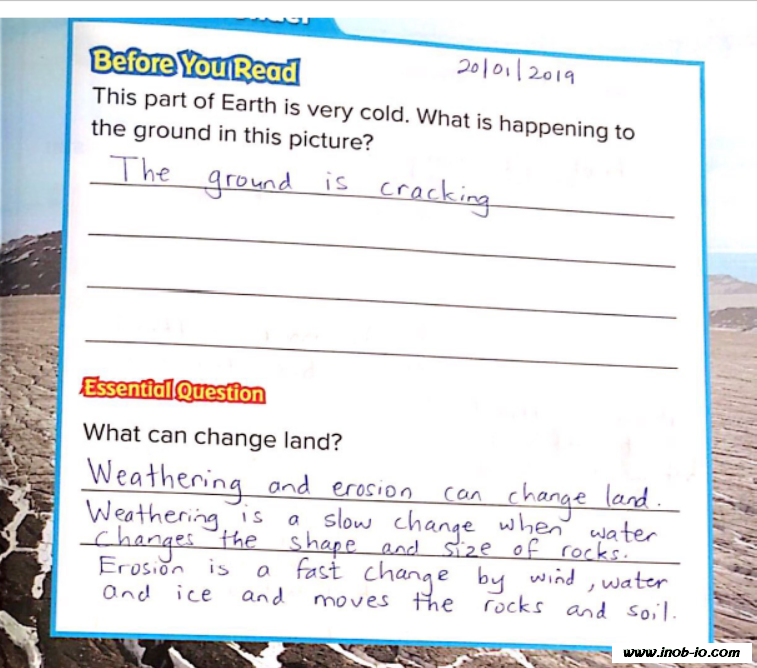 Before You Read
20/01/2019
This part of Earth is very cold. What is happening to
the ground in this picture?
The ground is cracking
Essential Question
What can change land?
Weathering and erosion can change land.
Weathering is a slow change when water
changes the shape and size of rocks.
Erosion is a fast change by wind, water
and ice and moves the rocks and soil.
www.inob-io.com